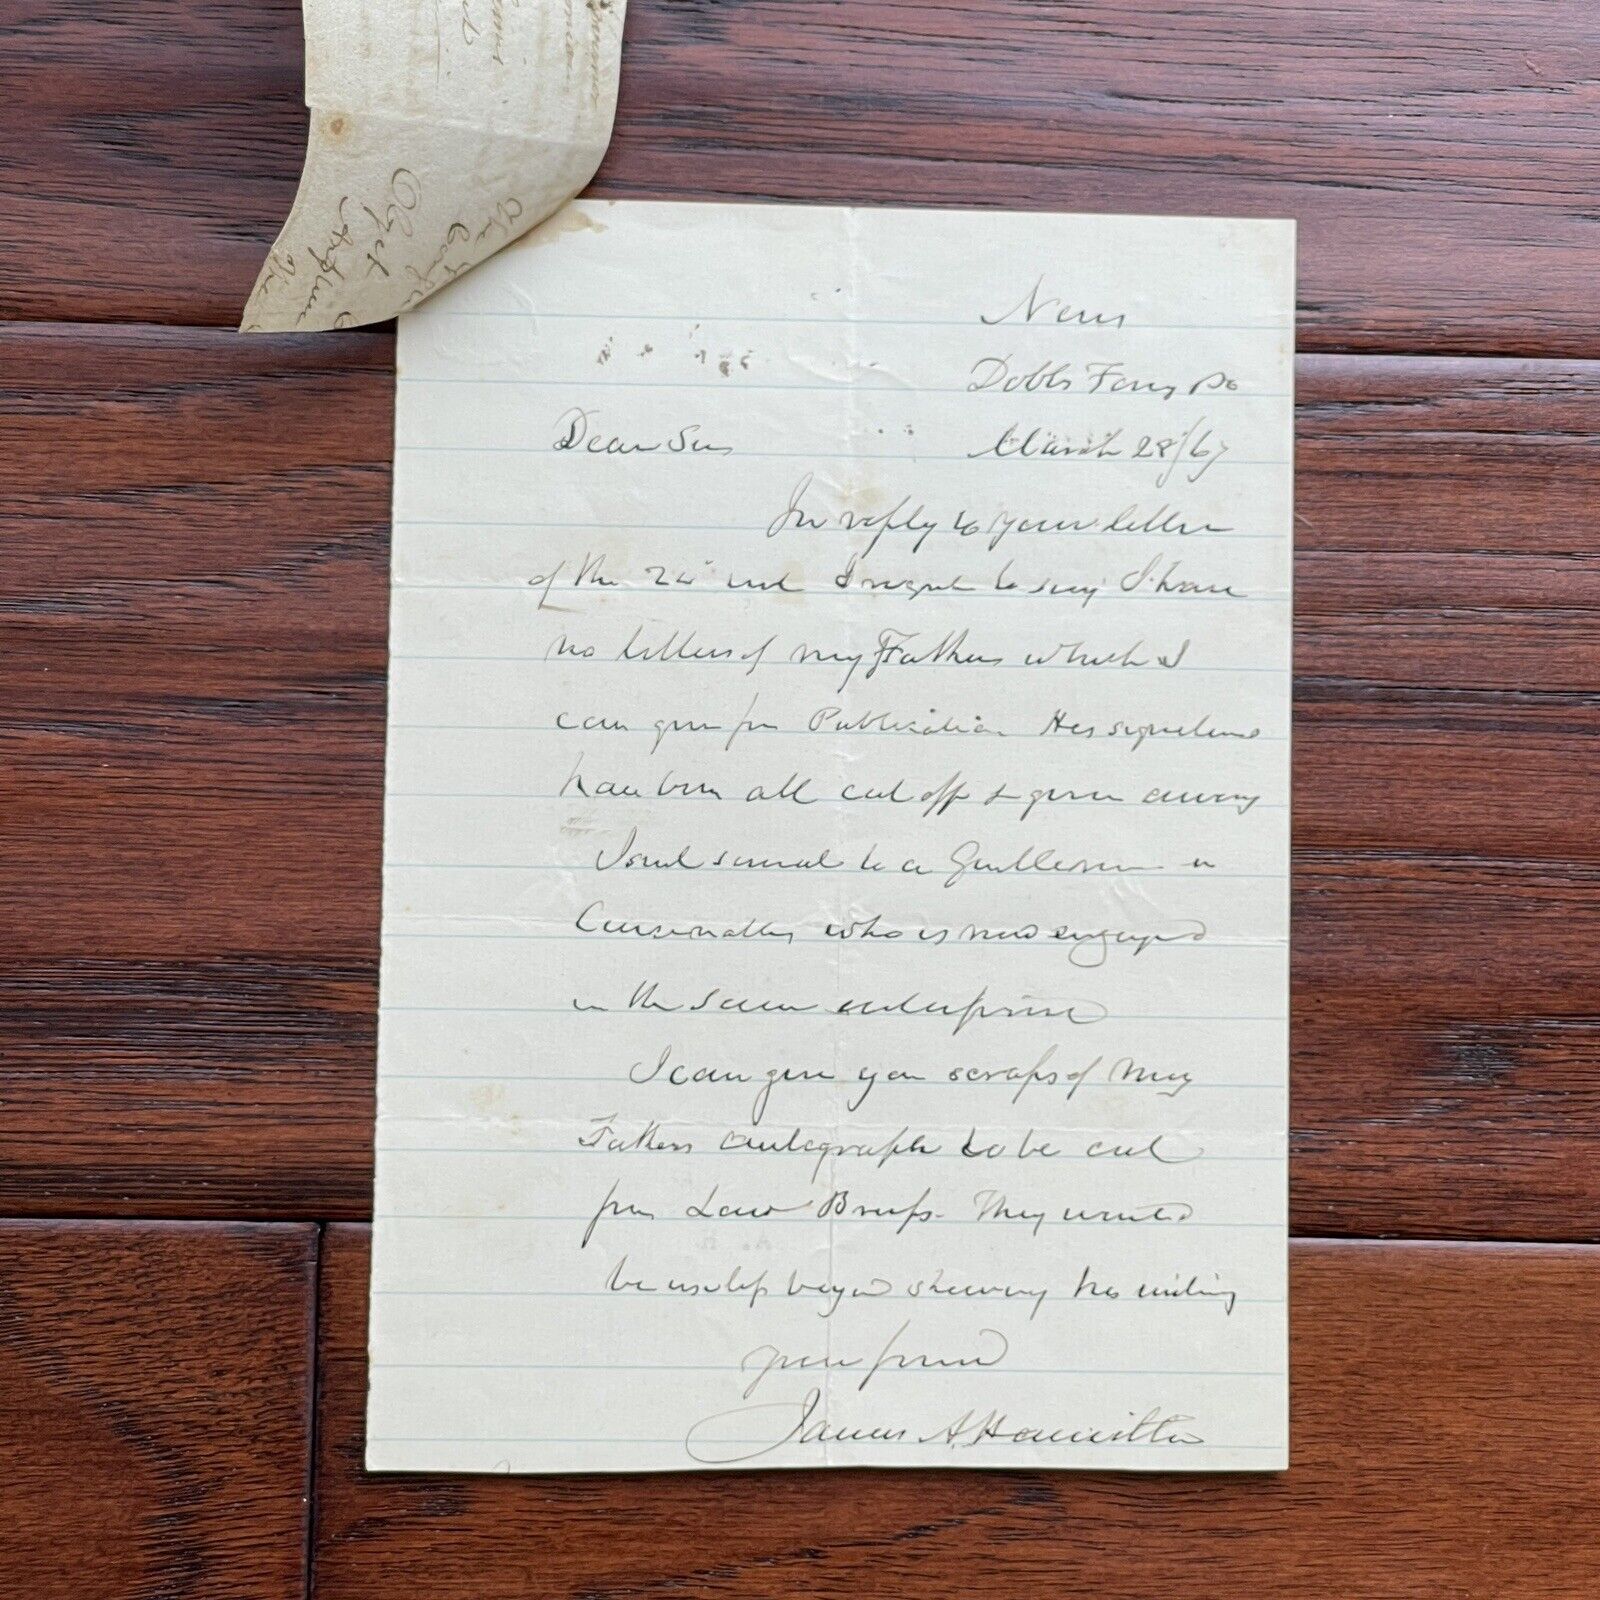 Nevis
Dobbs Ferry Po
Dear Sir
March 28/67
In reply to your letter
of the 24" inst I regret to say I have
no letters of my Fathers which I
can give for Publication His signatures
have been all cut off & given away
I sent several to a Gentleman in
Cincinnatti who is now engaged
in the same enterprise
I can give you scraps of my
Fathers autograph to be cut
from Law Briefs. They would
be useless beyond shewing his writing
your friend
James A. Hamilton
The
Object
The